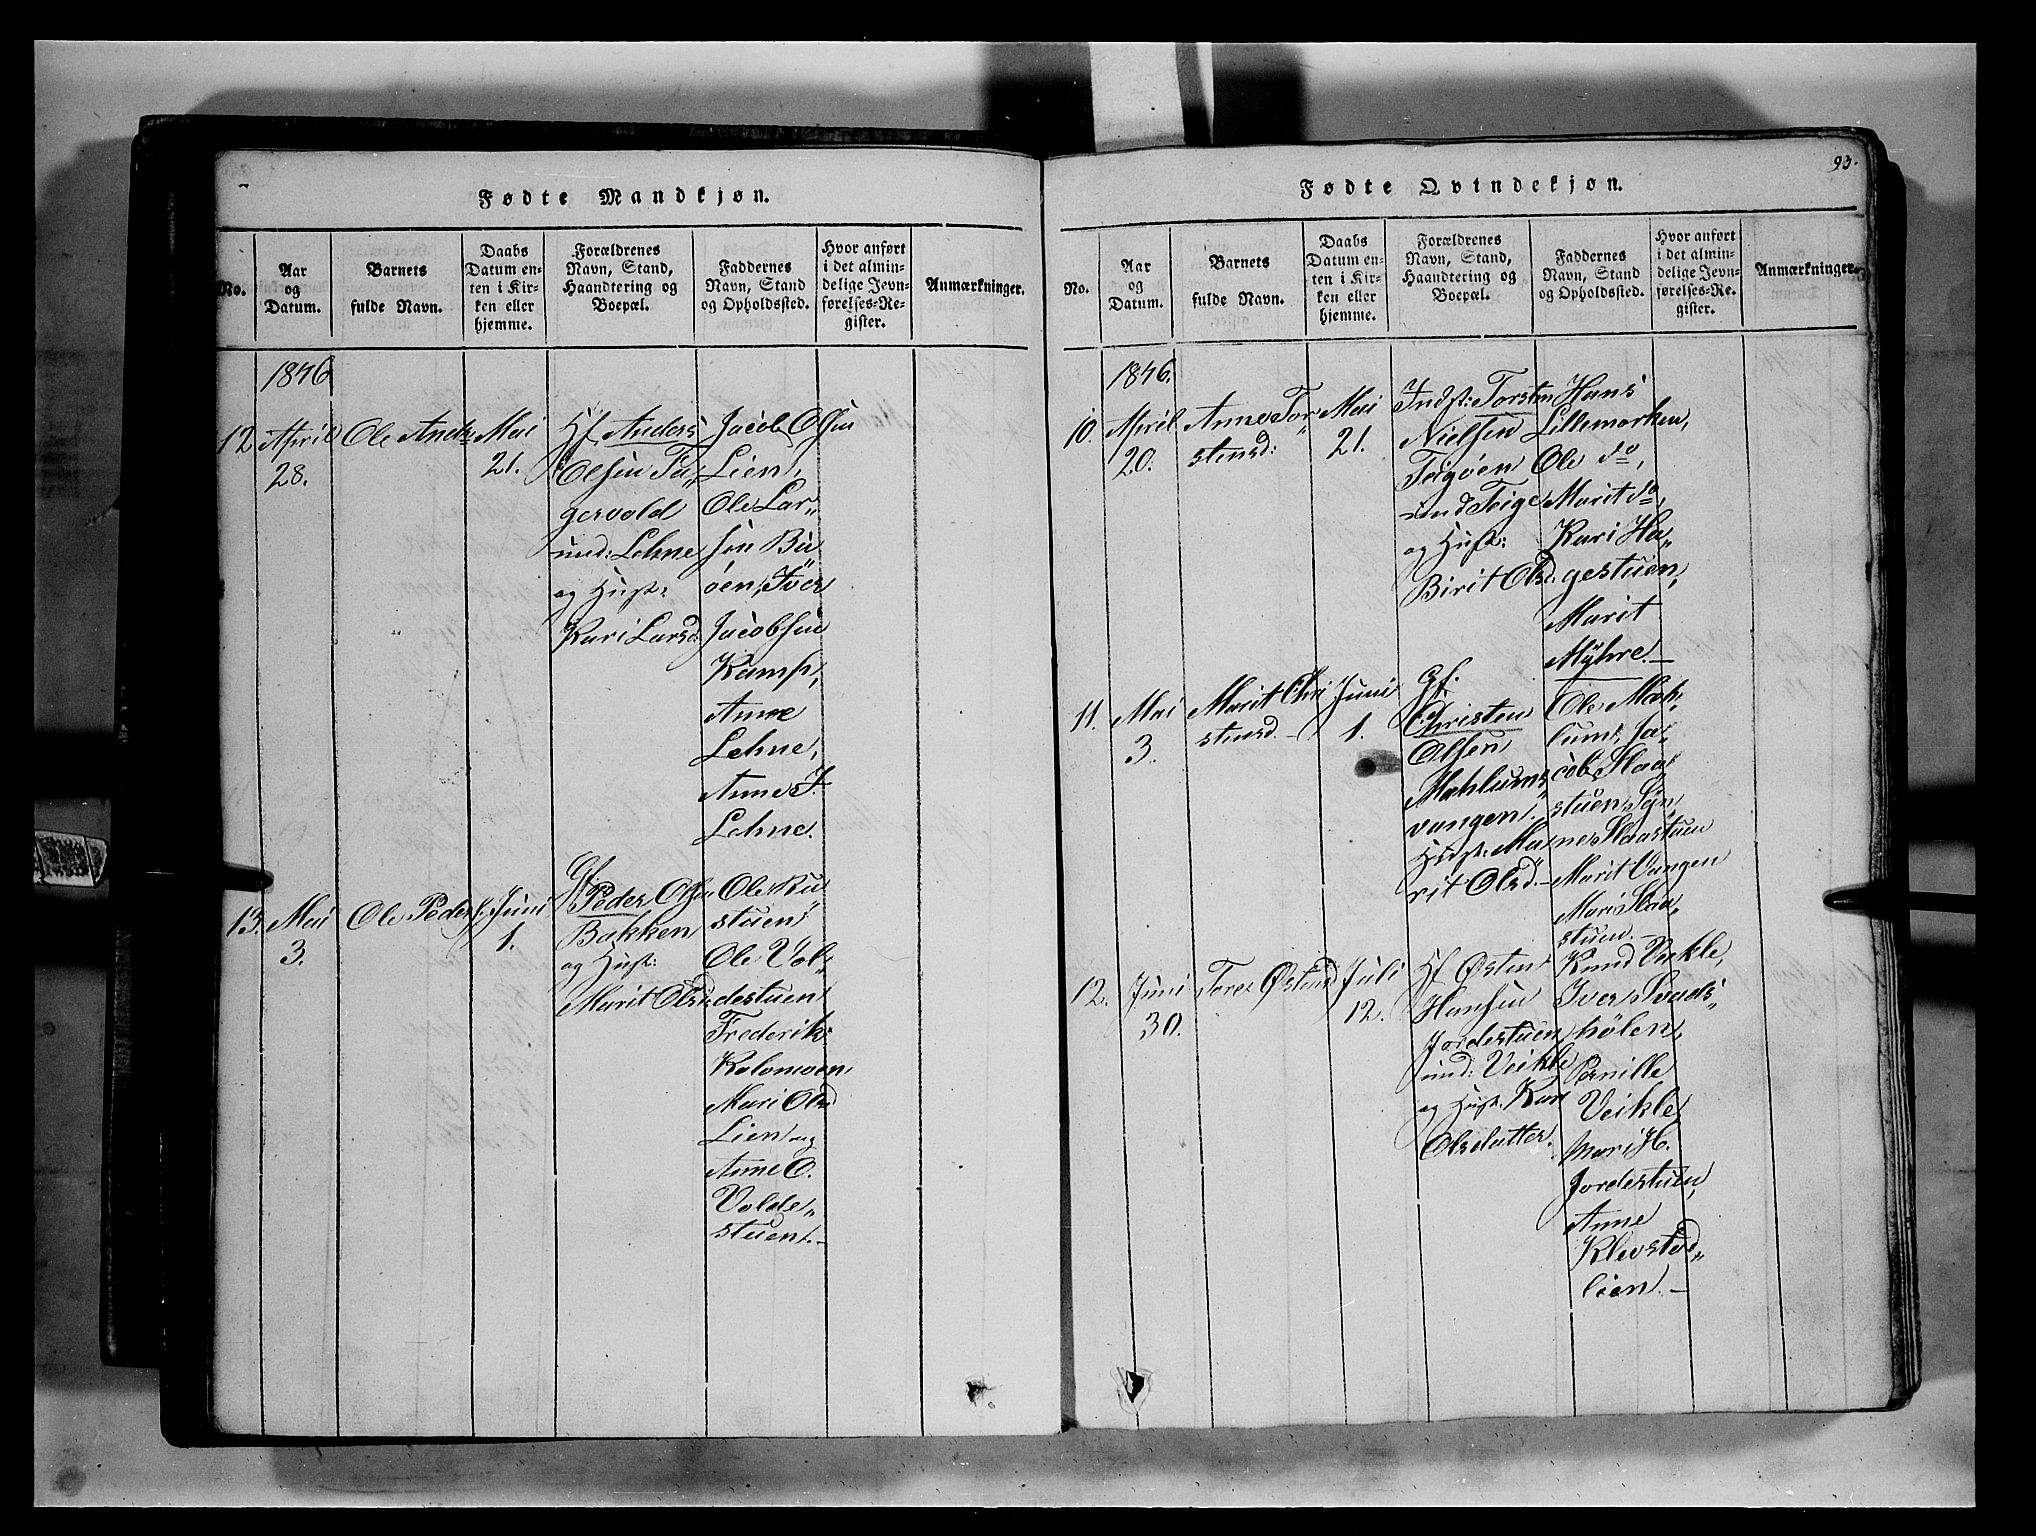 Fødte Mandkjøn.
No.
Aar
og
Datum.
Barnets
fulde Navn.
Daabs
Datum en-
ten i Kir-
ken eller
hjemme.
Forældrenes
Navn, Stand,
Haandtering og
Boepæl.
Faddernes
Navn, Stand
og Opholdssted.
Hvor anført
i det almin-
delige Jevn-
førelses-Re-
gister.
Anmærkninger.
1846
12
April
28.
Ole Anders
Mai
21.
Anders
Olsen
gervold
und: Lehne
og Hust:
Kari Larsd.
Jacob Olsen
Lien,
Ole Lar„
sen Bu
öen, Iver
Jacobsen
Kamp,
Anne
Lehne,
Anne J.
Lehne.
13.
Mai
3.
Ole Peders.
Juni
1.
Gf.
Peder Olsen
Bakken
og Hust:
Marit Olsd.
Ole Ru
stuen
Ole Vol„
destuen
Frederik
Kolomoen
Mari Olsd
Lien og
Anne O.
Volde„
stuen.—
93.
Fødte Qvindekjøn.
No.
Aar
og
Datum.
Barnets
fulde Navn.
Daabs
Datum en-
ten i Kir-
ken eller
hjemme.
Forældrenes
Navn, Stand,
Haandtering og
Boepæl.
Faddernes
Navn, Stand
og Opholdssted.
Hvor anført
i det almin-
delige Jevn-
førelses-Re-
gister.
Anmærkninger.
1846.
10.
April
20.
Anne Tor„
stensd:
Mai
21.
Indst: Torsten
Nielsen
Teigöen
und Teige
og Hust:
Birit Olsd.
Hans
Lillemorken,
Ole do,
Marit do,
Kari Ha„
gestuen,
Marit
Myhre.—
11.
Mai
3.
Marit Chri
stensd.—
Juni
1.
Gf.
Christen
Olsen
Mæhlums„
vangen.
Hust: Ma
rit Olsd.—
Ole Mæh„
lum, Ja„
cob Slaa„
stuen, Syn„
ne Slaastuen
Marit Vangen
Mari Slaa„
stuen.—
12.
Juni
30.
Tore Østensd
Juli
12.
Hf Østen
Hansen
Jordestuen
und: Veikle
og Hust: Kari
Olsdatter.
Knud Veikle,
Iver Svads„
hölen,
Pernille
Veikle
Mari H.
Jordestuen,
Anne
Klevstad„
lien.—